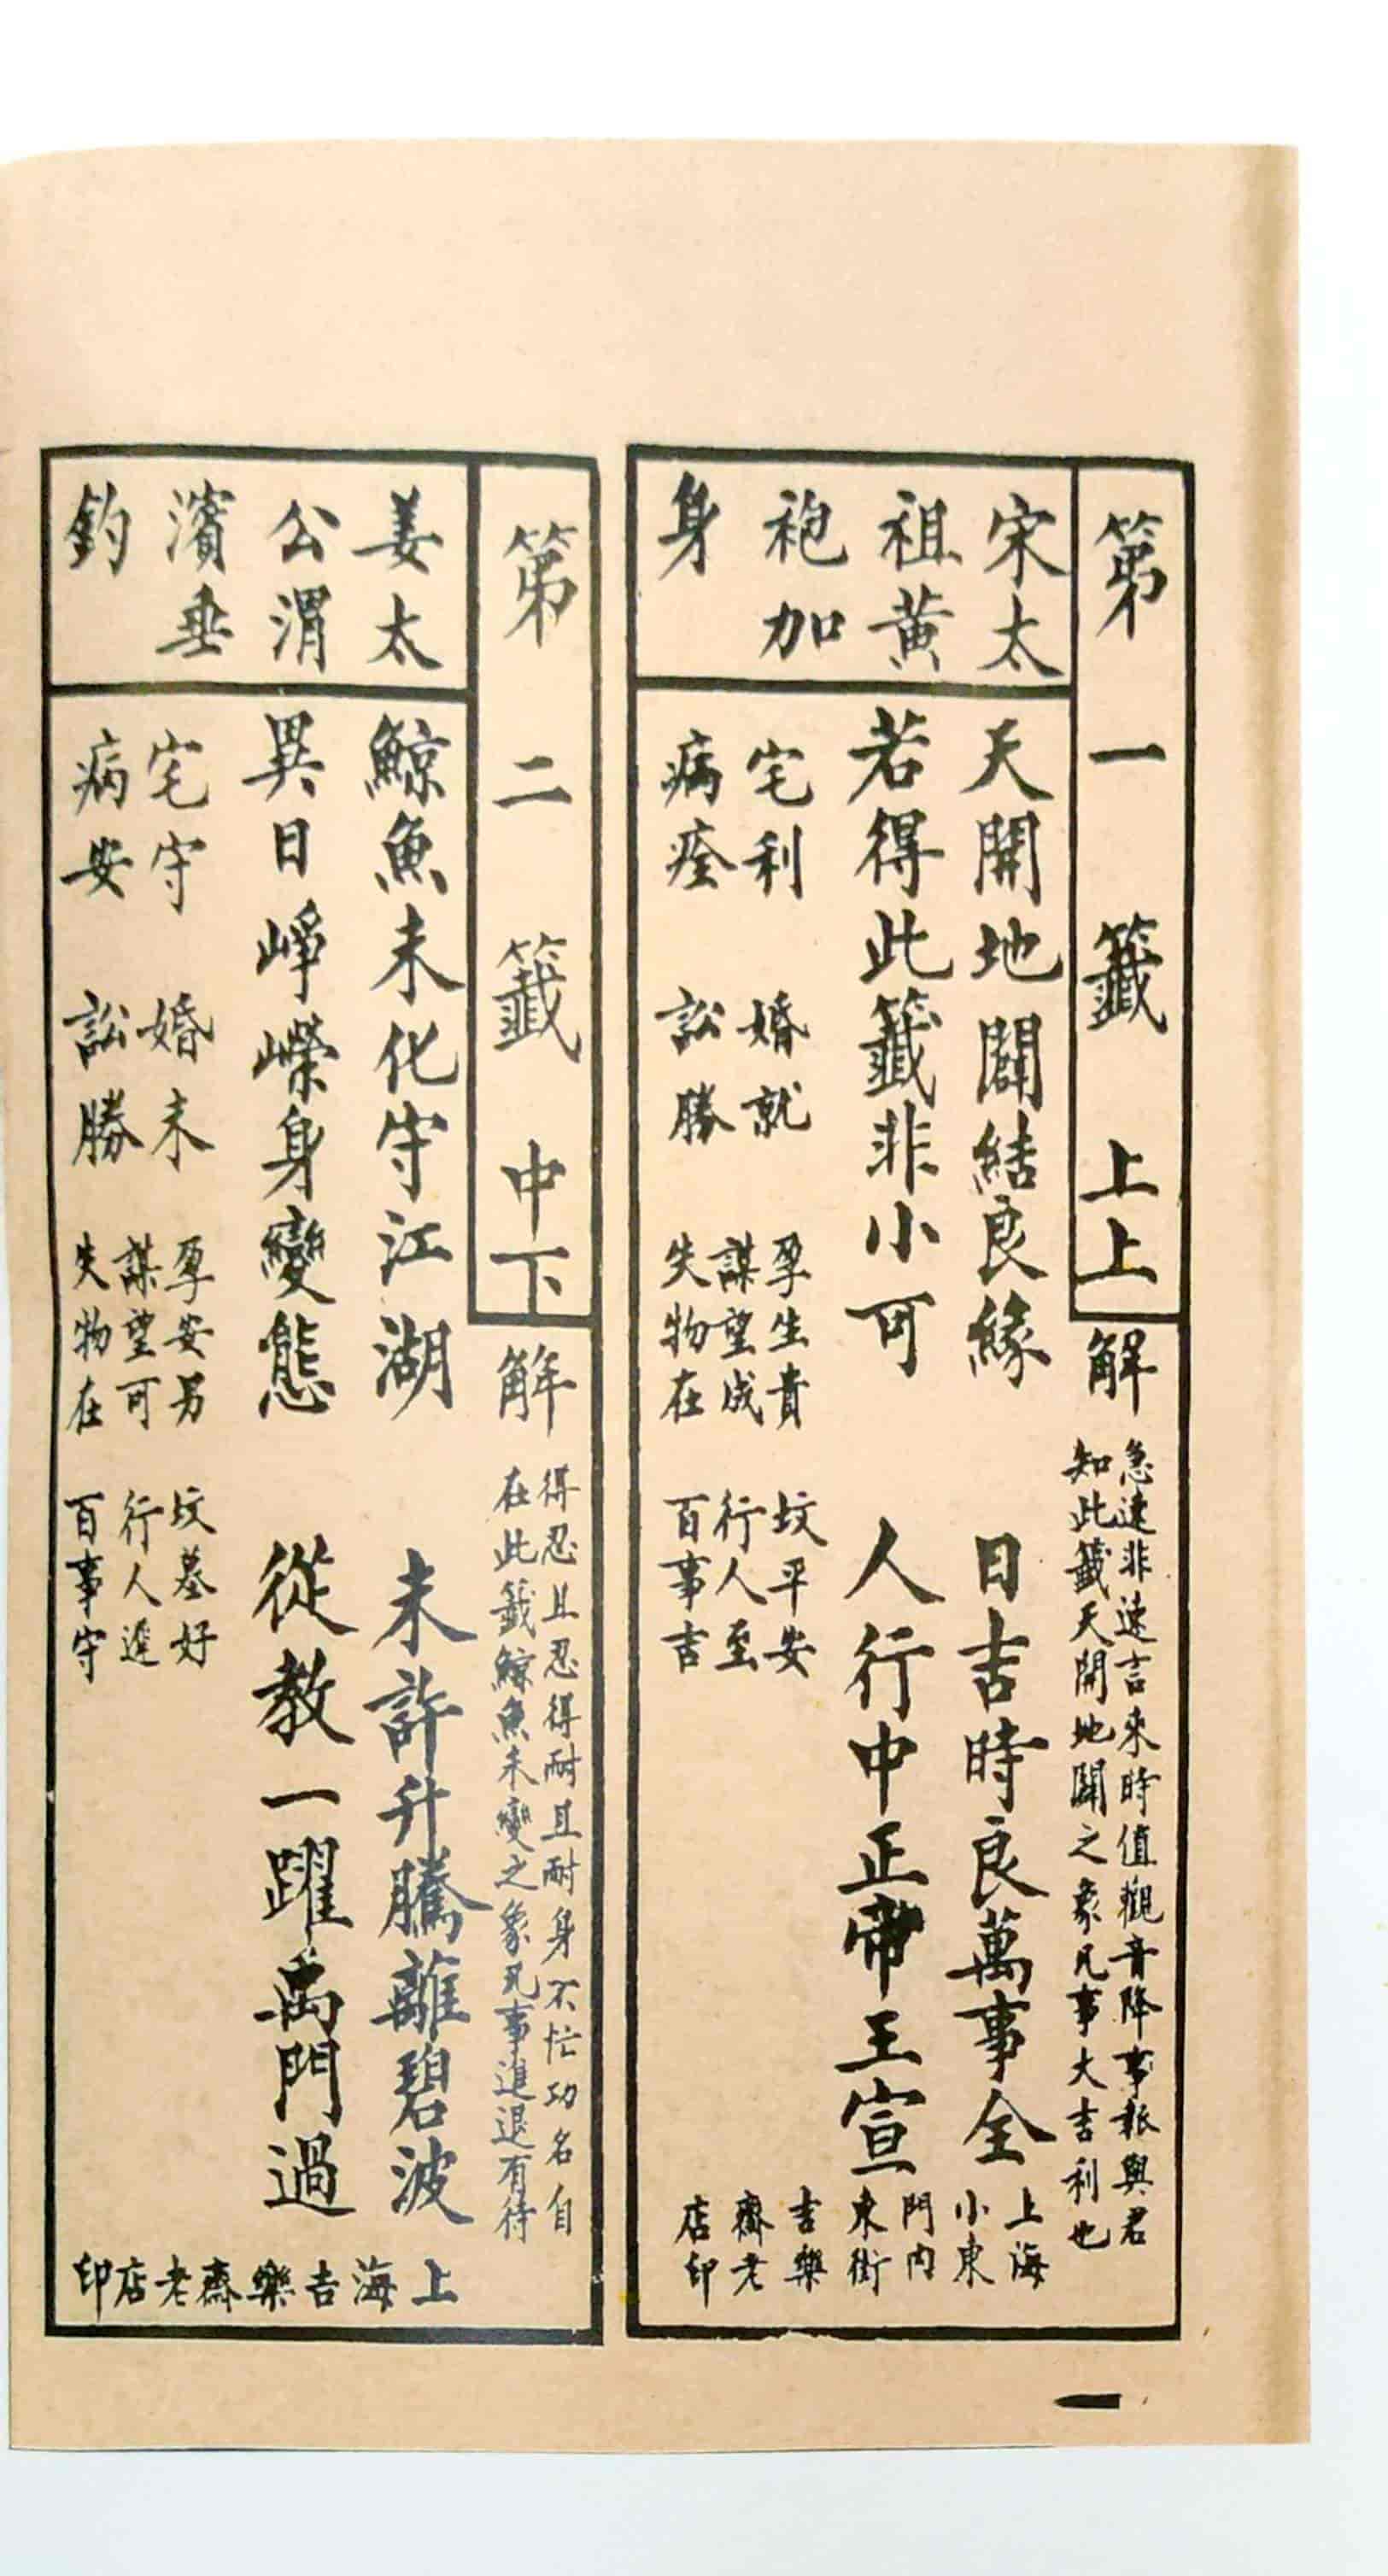 第一籤 上上
解
急速非速言來時值觀音降事報與君
知此籤天開地闢之象凡事大吉利也
宋太
祖黃
袍加
身
天開地闢結良緣 日吉時良萬事全
若得此籤非小可 人行中正帝王宣
宅利 婚就 孕生貴 坟平安
謀望成 行人至
病痊 訟勝 失物在 百事吉
上海
小東
門內
東街
吉樂
齋老
店印
第二籤 中下
解
得忍且忍得耐且耐身不忙功名自
在此籤鯨魚未變之象凡事進退有待
姜太
公渭
濱垂
釣
鯨魚未化守江湖 未許升騰離碧波
異日崢嶸身變態 從教一躍禹門過
宅守 婚未 孕安男 坟墓好
謀望可 行人遲
病安 訟勝 失物在 百事守
上海吉樂齋老店印
一